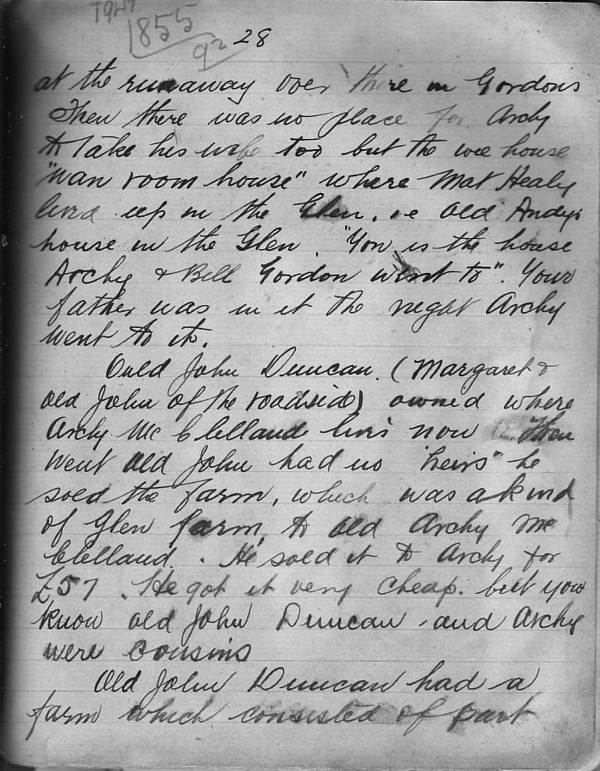 1947
1855
92
28
at the runaway over there in Gordons
Then there was no place for Archy
to take his wife too but the wee house
"wan room house" where Mat Healy
lived up in the Glen. ie old Andys
house in the Glen. "Yon is the house
Archy & Bell Gordon went to". Your
father was in it the night Archy
went to it.
Ould John Duncan. (Margaret &
old John of the roadside) owned where
Archy Mc Clelland livs now
went old John had no "heirs" he
soed the farm, which was a kind
of Glen farm, to old Archy Mc
Clelland. He sold it to Archy for
£57. He got it very cheap. but you
know old John Duncan and Archy
were cousins
Old John Duncan had a
farm which consisted of part